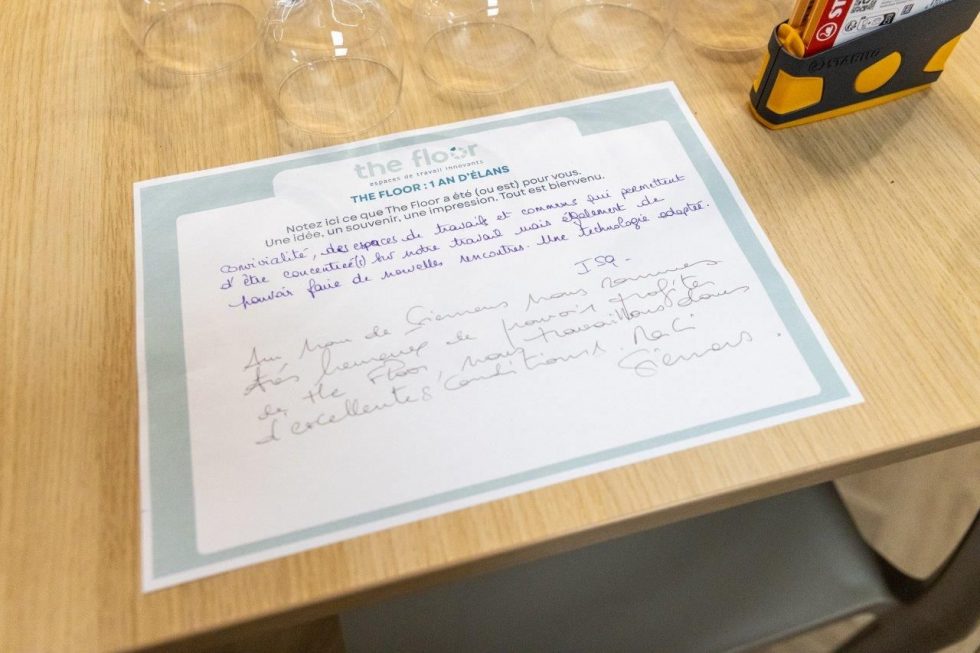 the floor
espaces de travail innovants
THE FLOOR : 1 AN D'ÉLANS
Notez ici ce que The Floor a été (ou est) pour vous.
Une idée, un souvenir, une impression. Tout est bienvenu.
convivialité, des espaces de travails et communs qui permettent
d'être concentreé(s) sur notre travail mais également de
pouvoir faire de nouvelles rencontres. Une technologie adaptée.
JSQ -
Au nom de Siemens nous sommes
très heureux de pouvoir profiter
de the Floor, nous travaillons dans
d'excellentes conditions.
Siemens.
STABILO